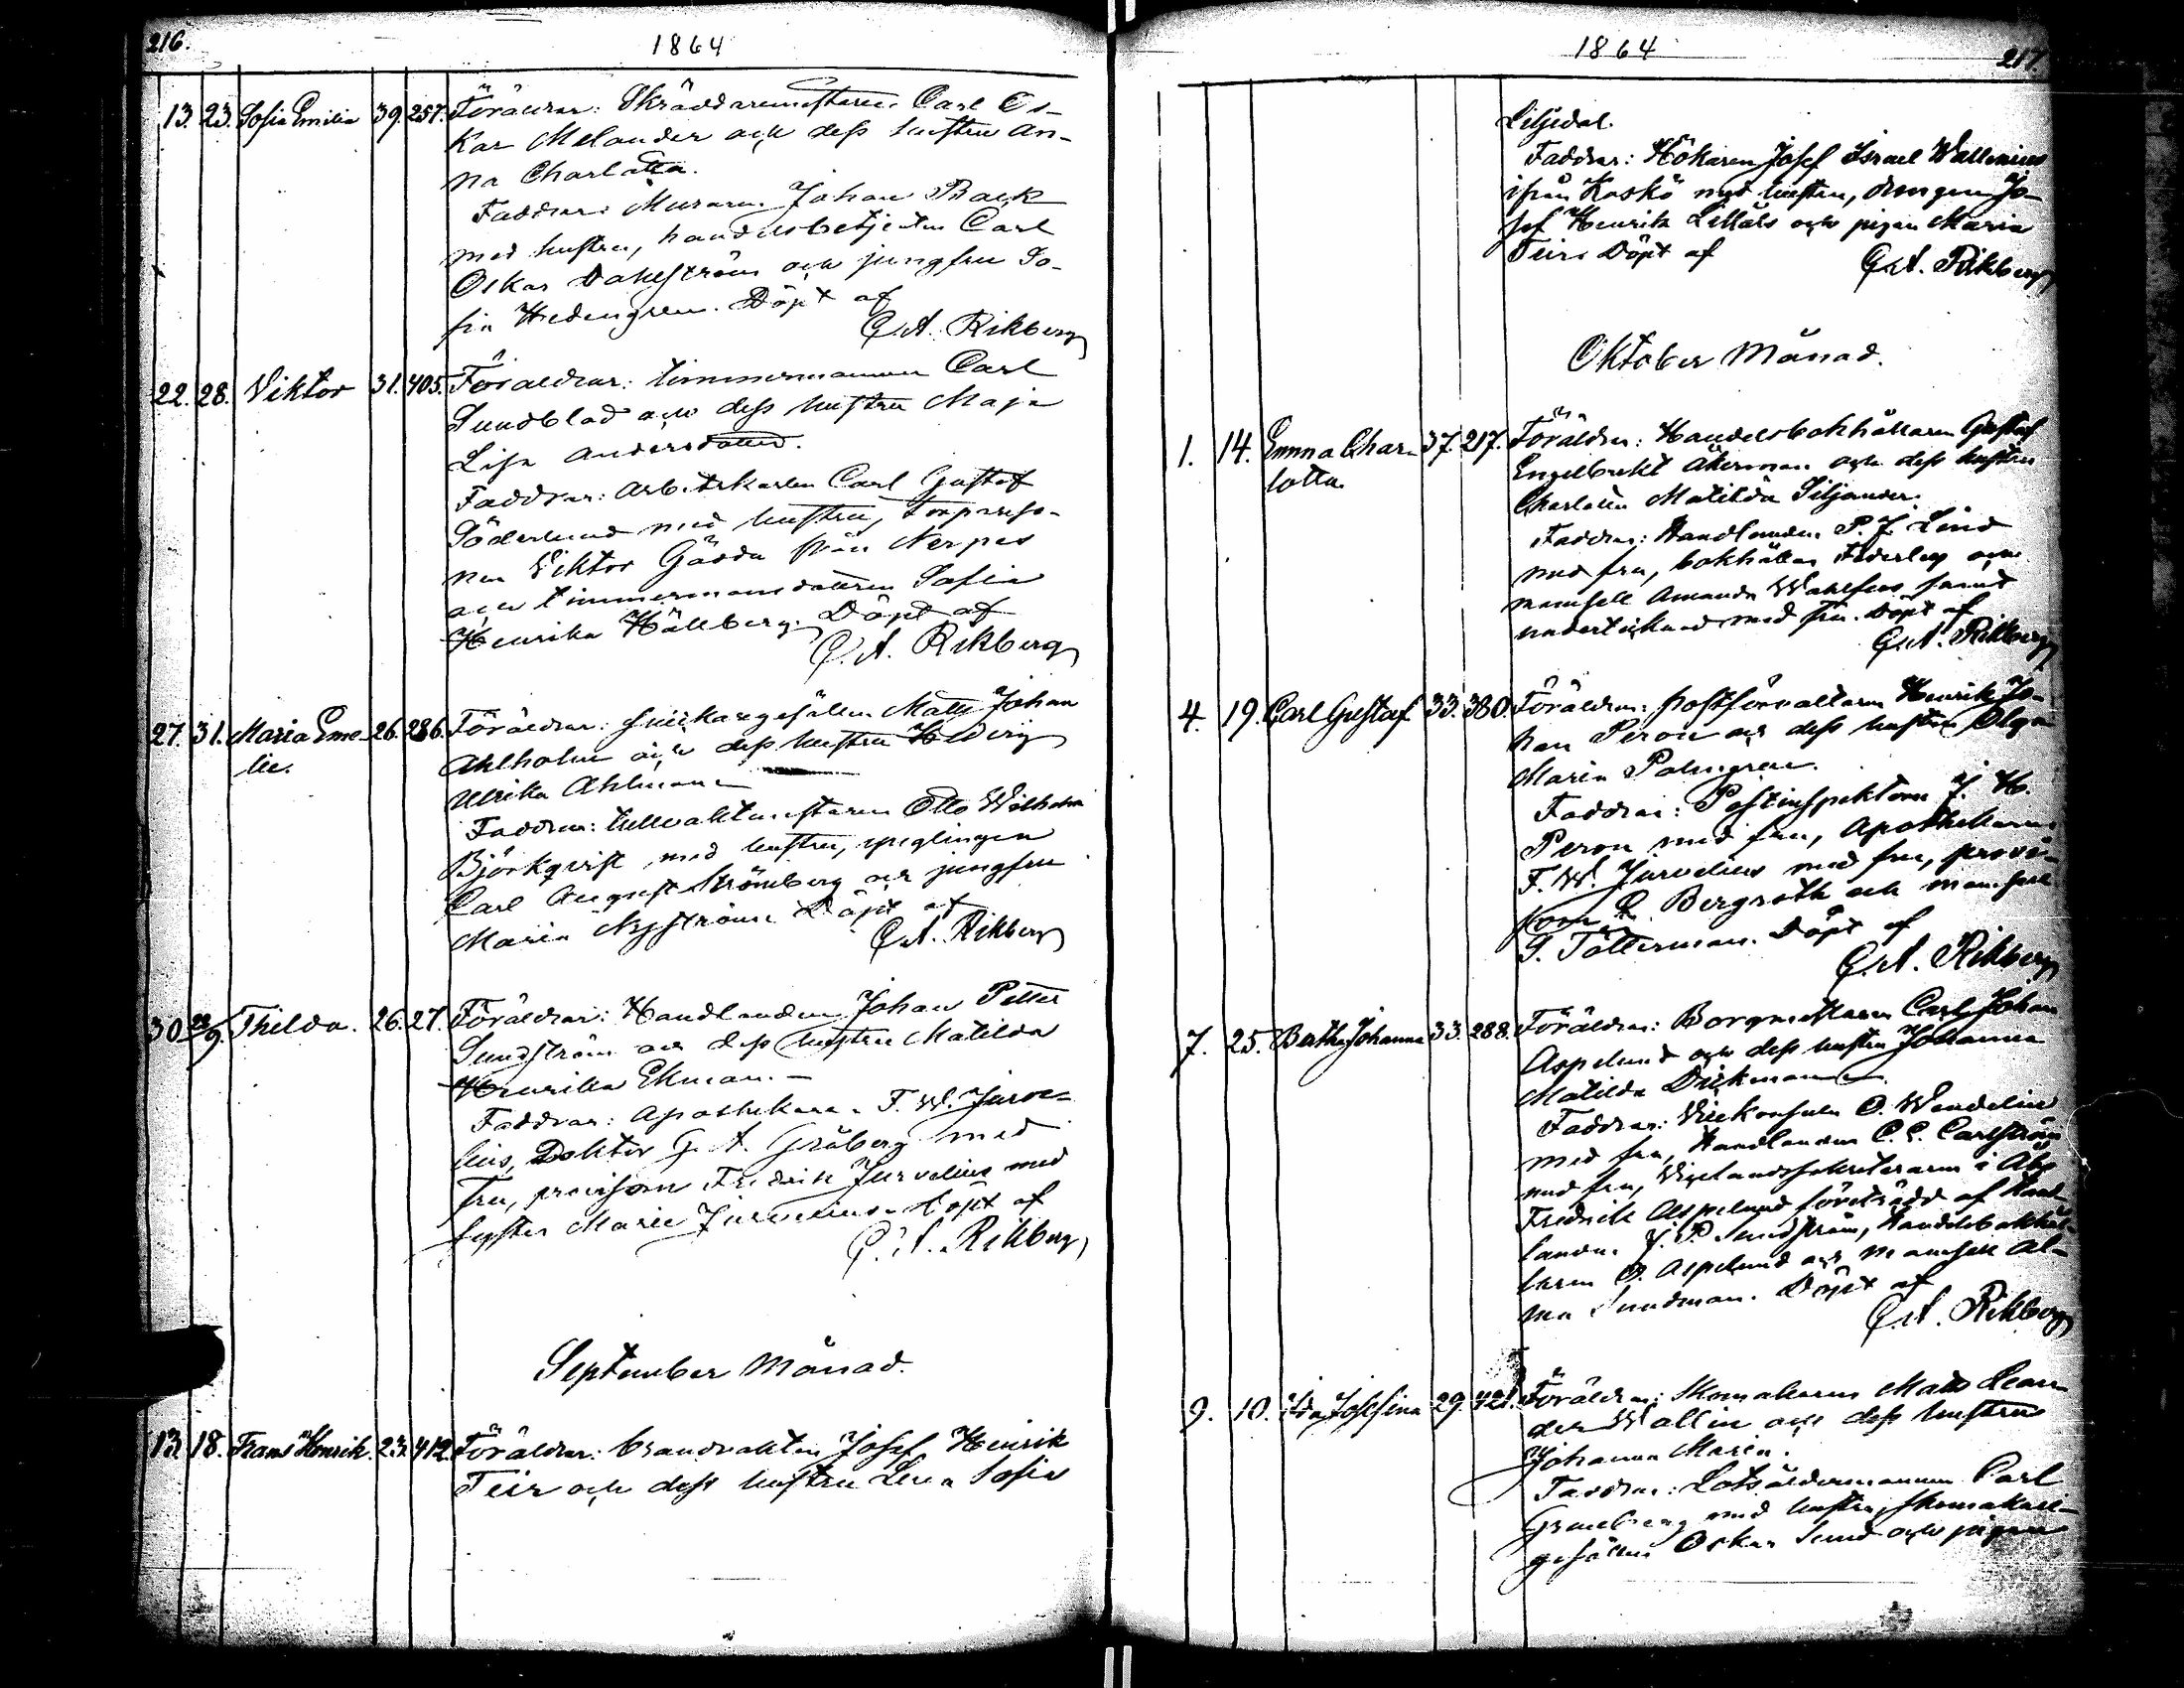 216.
1864
13. 23. Sofia Emilia 39. 257. Föräldrar: Skräddaremästaren Carl Os-
kar Melander och dess hustru An-
na Charlotta.
Faddrar: Muraren Johan Back
med hustru, handelsbetjenten Carl
Oskar Dahlström och jungfru So-
fia Hedengren. Döpt af
G. A. Rikberg
22. 28. Viktor 31. 405. Föräldrar: timmermannen Carl
Sundblad och dess hustru Maja
Lisa Andersdotter.
Faddrar: Arbetskarlen Carl Gustaf
Söderlund med hustru, torpareso-
nen Viktor Gädda från Nerpes
och timmermansdottren Sofia
Henrika Hällberg. Döpt af
G. A. Rikberg
27. 31. Maria Eme- 26. 286. Föräldrar: snickaregesällen Matts Johan
lie.
Ahlholm och dess hustru Hedvig
Ulrika Ahlman
Faddrar: tullvaktmästaren Otto Wilhelm
Björkqvist med hustru, ynglingen
Carl August Strömberg och jungfru
Maria Nyström. Döpt af
G. A. Rikberg
30 22/9. Thilda. 26. 27. Föräldrar: Handlanden Johan Petter
Sundström och dess hustru Matilda
Henrika Ekman.
Faddrar: Apothekare F. W. Jurve-
lius, Doktor G. A. Gråberg med
fru, provisorn Fredrik Jurvelius med
syster Marie Jurvelius. Döpt af
G. A. Rikberg
September Månad.
13. 18. Frans Henrik. 23. 412. Föräldrar: brandvakten Josef Henrik
Teir och dess hustru Lena Sofia
1864
217.
Liljedal.
Faddrar: Hökaren Josef Israel Wallenius
ifrån Kaskö med hustru, drengen Jo-
sef Henrik Lillåls och pigan Maria
Teir. Döpt af
G. A. Rikberg
Oktober Månad.
1. 14. Emma Char- 37. 217. Föräldrar: Handelsbokhållaren Gustaf
lotta.
Engelbrekt Åkerman och dess hustru
Charlotta Matilda Siljander.
Faddrar: Handlanden P. J. Lind
med fru, bokhållar Federley och
mamsell Amanda Wahlfors samt
undertecknad med fru. Döpt af
G. A. Rikberg
4. 19. Carl Gustaf 33. 380. Föräldrar: postförvaltaren Henrik Jo-
han Peron och dess hustru Olga
Maria Palmgren.
Faddrar: Postinspektoren J. H.
Peron med fru, Apothekaren
F. W. Jurvelius med fru, provi-
sorn Bergroth och mamsell
G. Tötterman. Döpt af
G. A. Rikberg
7. 25. Bertha Johanna 33. 288. Föräldrar: Borgmästaren Carl Johan
Aspelund och dess hustru Johanna
Matilda Dickman
Faddrar: Vicekonsuln O. Wendelin
med fru, Handlanden C. E. Carlström
med fru, Vicelandssekreteraren i Åbo
Fredrik Aspelund företrädd af Hand-
landn. J. P. Sundström, Handelsbokhål-
laren O. Aspelund och mamsell Al-
ma Sundman. Döpt af
G. A. Rikberg
9. 10. Ida Josefina 29. 421. Föräldrar: Skomakaren Mats Lean-
der Wallin och dess hustru
Johanna Maria.
Faddrar: Lotsåldermannen Carl
med hustru, skomakare-
gesällen Oskar Sund och pigan